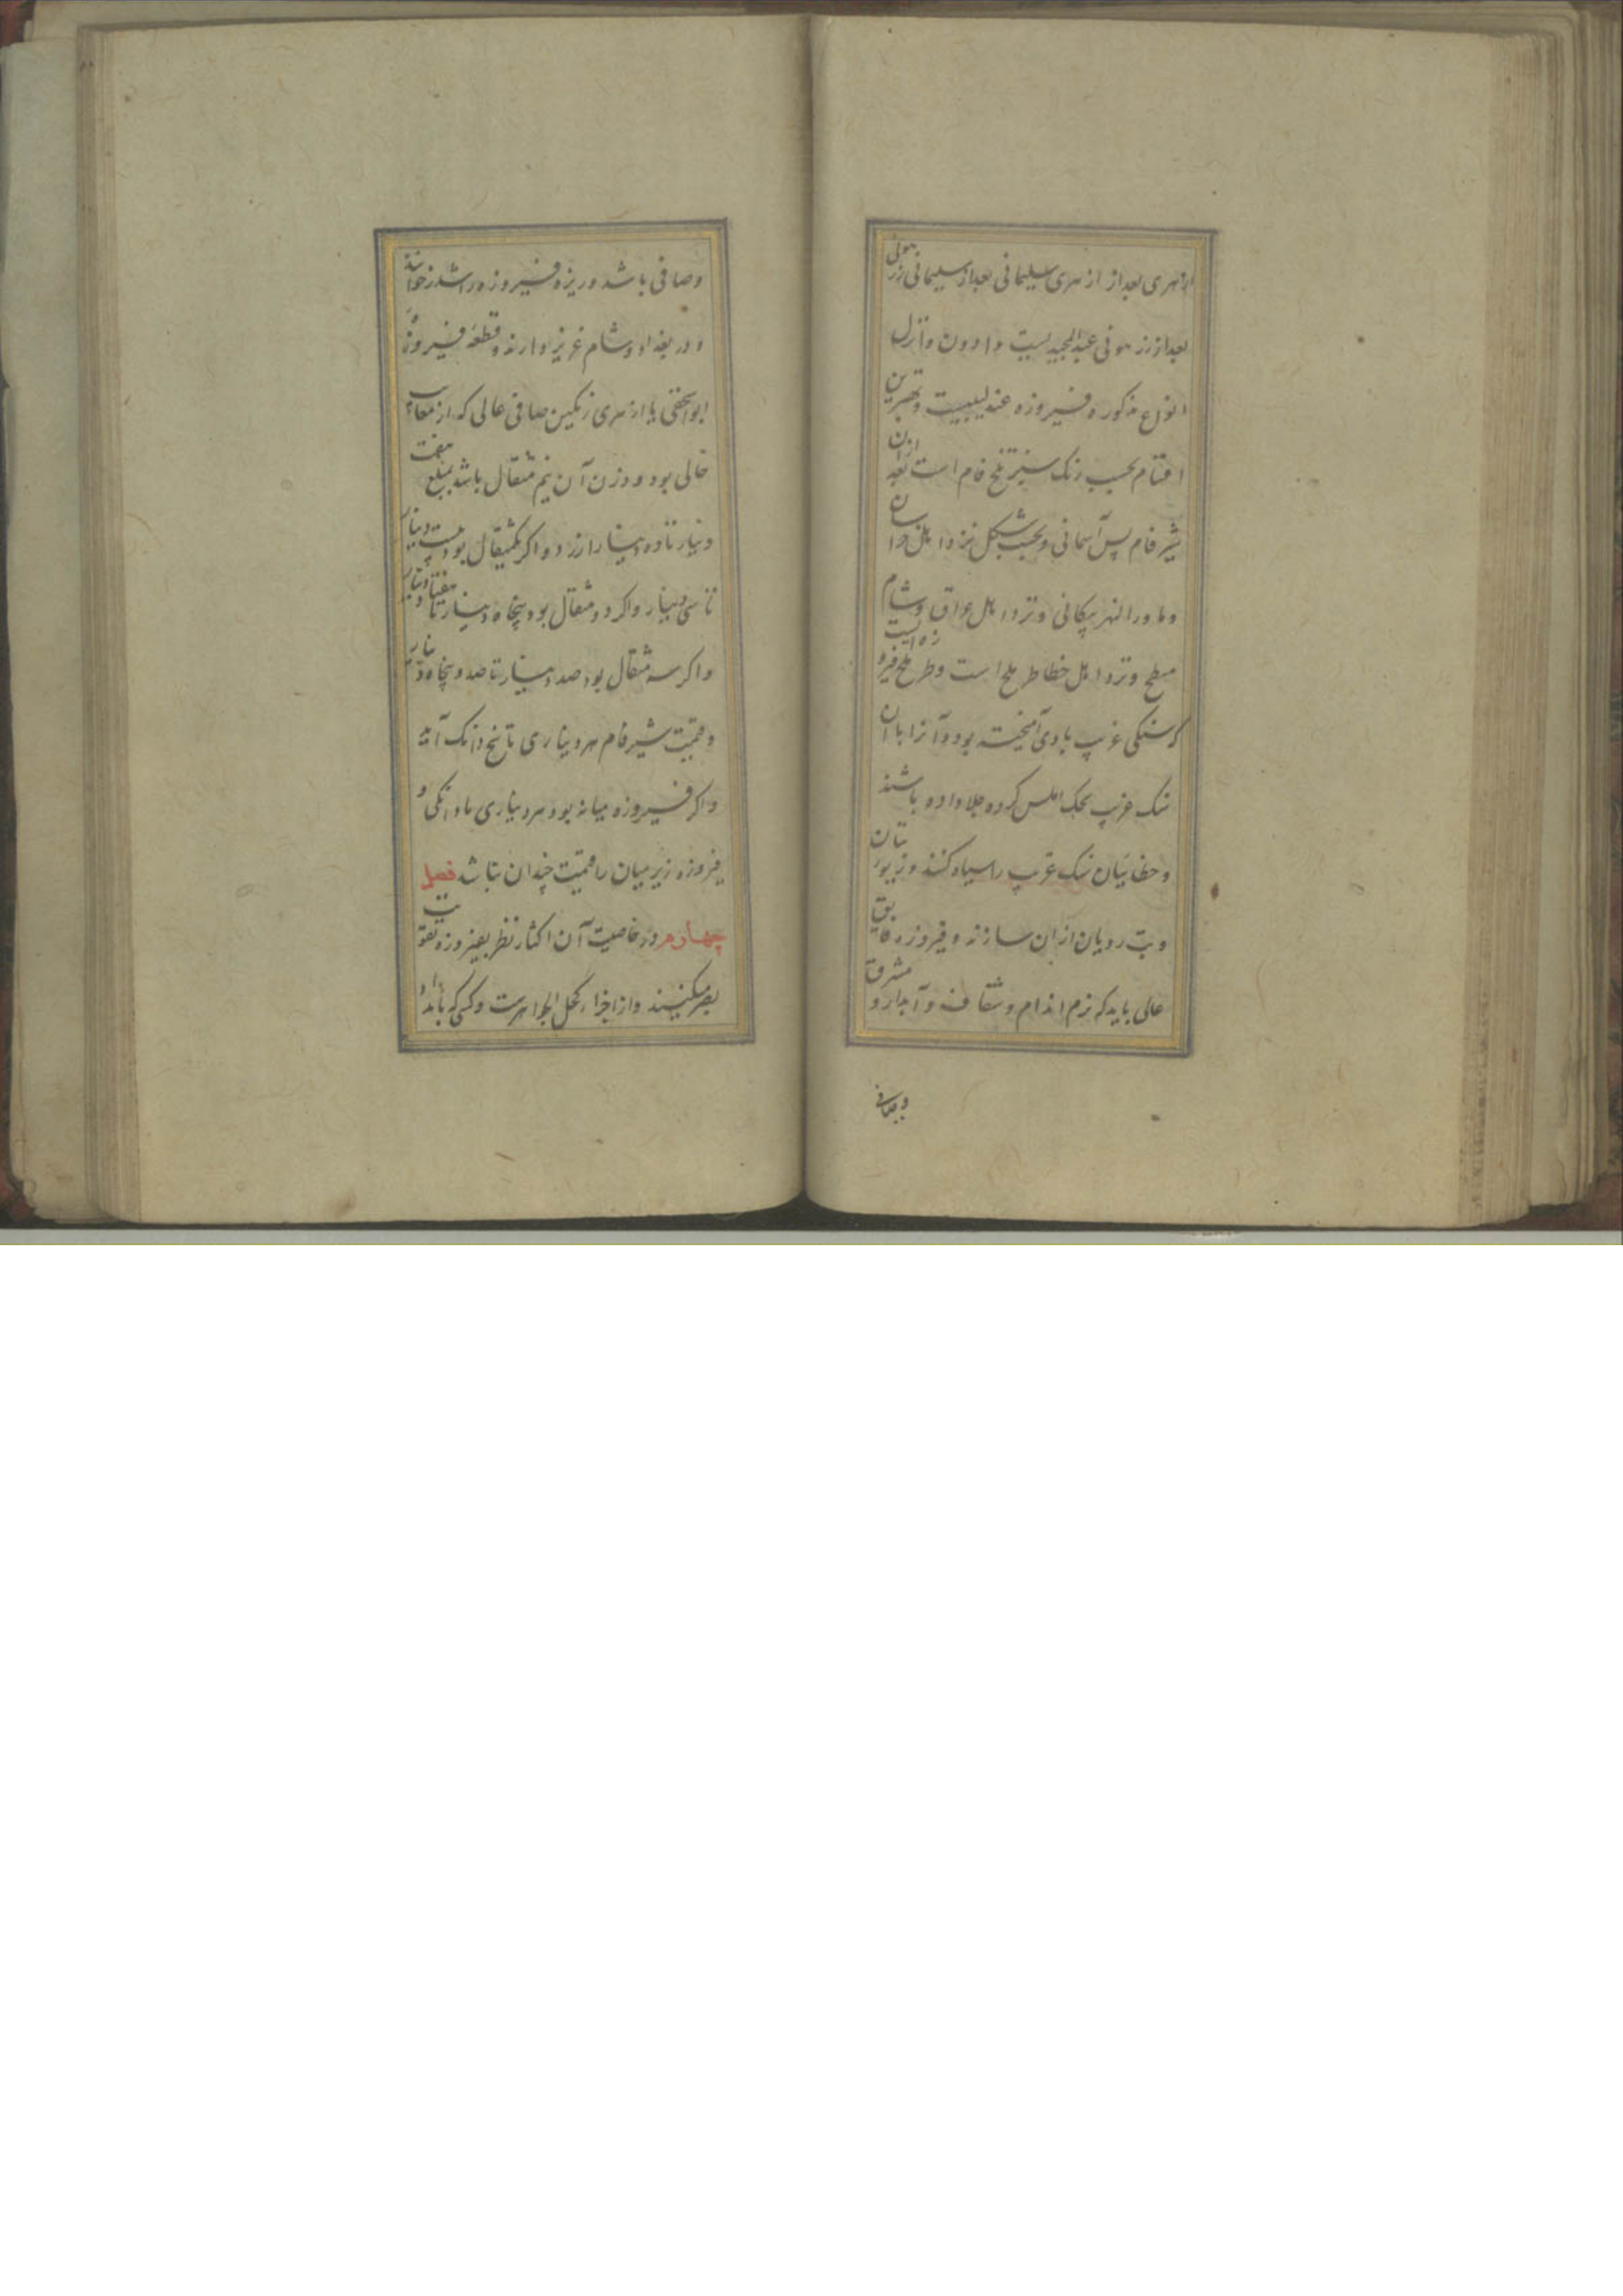 ازهری بعد از ازهری سلیمانی بعد از سلیمانی زرهونی
بعد از زرهونی عبدالمجیدیست و ادون و انزل
انواع مذکوره فیروزه عندلیبیست و بهترین
اقسام بحسب رنک سبز تلخ فام است بعد ازان
شیرفام پس آسمانی و بحسب شکل نزد اهل خراسان
و ماوراالنهر پیکانی و نزد اهل عراق و شام
مسطح و نزد اهل خطا طرملح است و طرملح فیروزه ایست
که سنکی غریب با وی آمیخته بود و آنرا با آن
سنک غریب بحک املس کرده جلا داده باشند
و خطائیان سنک غریب را سیاه کنند و زیور بتان
و بت رویان ازان سازند و فیروزه فایق
عالی باید که نرم اندام و شفاف و آبدار و مشرق
وصافی
وصافی باشد و ریزه فیروزه را شذر خوانند
و در بغداد و شام عزیز دارند و قطعه فیروزه
ابواسحقی یا ازهری رنکین صافی عالی که از معایب
خالی بود و وزن آن نیم مثقال باشد بمبلغ هفت
دینار تا ده دینار ارزد و اکر یکمثقال بود بیست دینار
تا سی دینار و اکر دو مثقال بود پنجاه دینار تا هفتاد دینار
و اکر سه مثقال بود صد دینار تا صد و پنجاه دینار
و قیمت شیرفام هر دیناری تا پنج دانک آید
و اکر فیروزه میانه بود هر دیناری تا دانکی و
فیروزه زیر میان را قیمت چندان نباشد فصل
چهارم در خاصیت آن اکثار نظر بفیروزه تقویت
بصر میکنند و از اجزاء کحل الجواهرست و کسی که بامداد